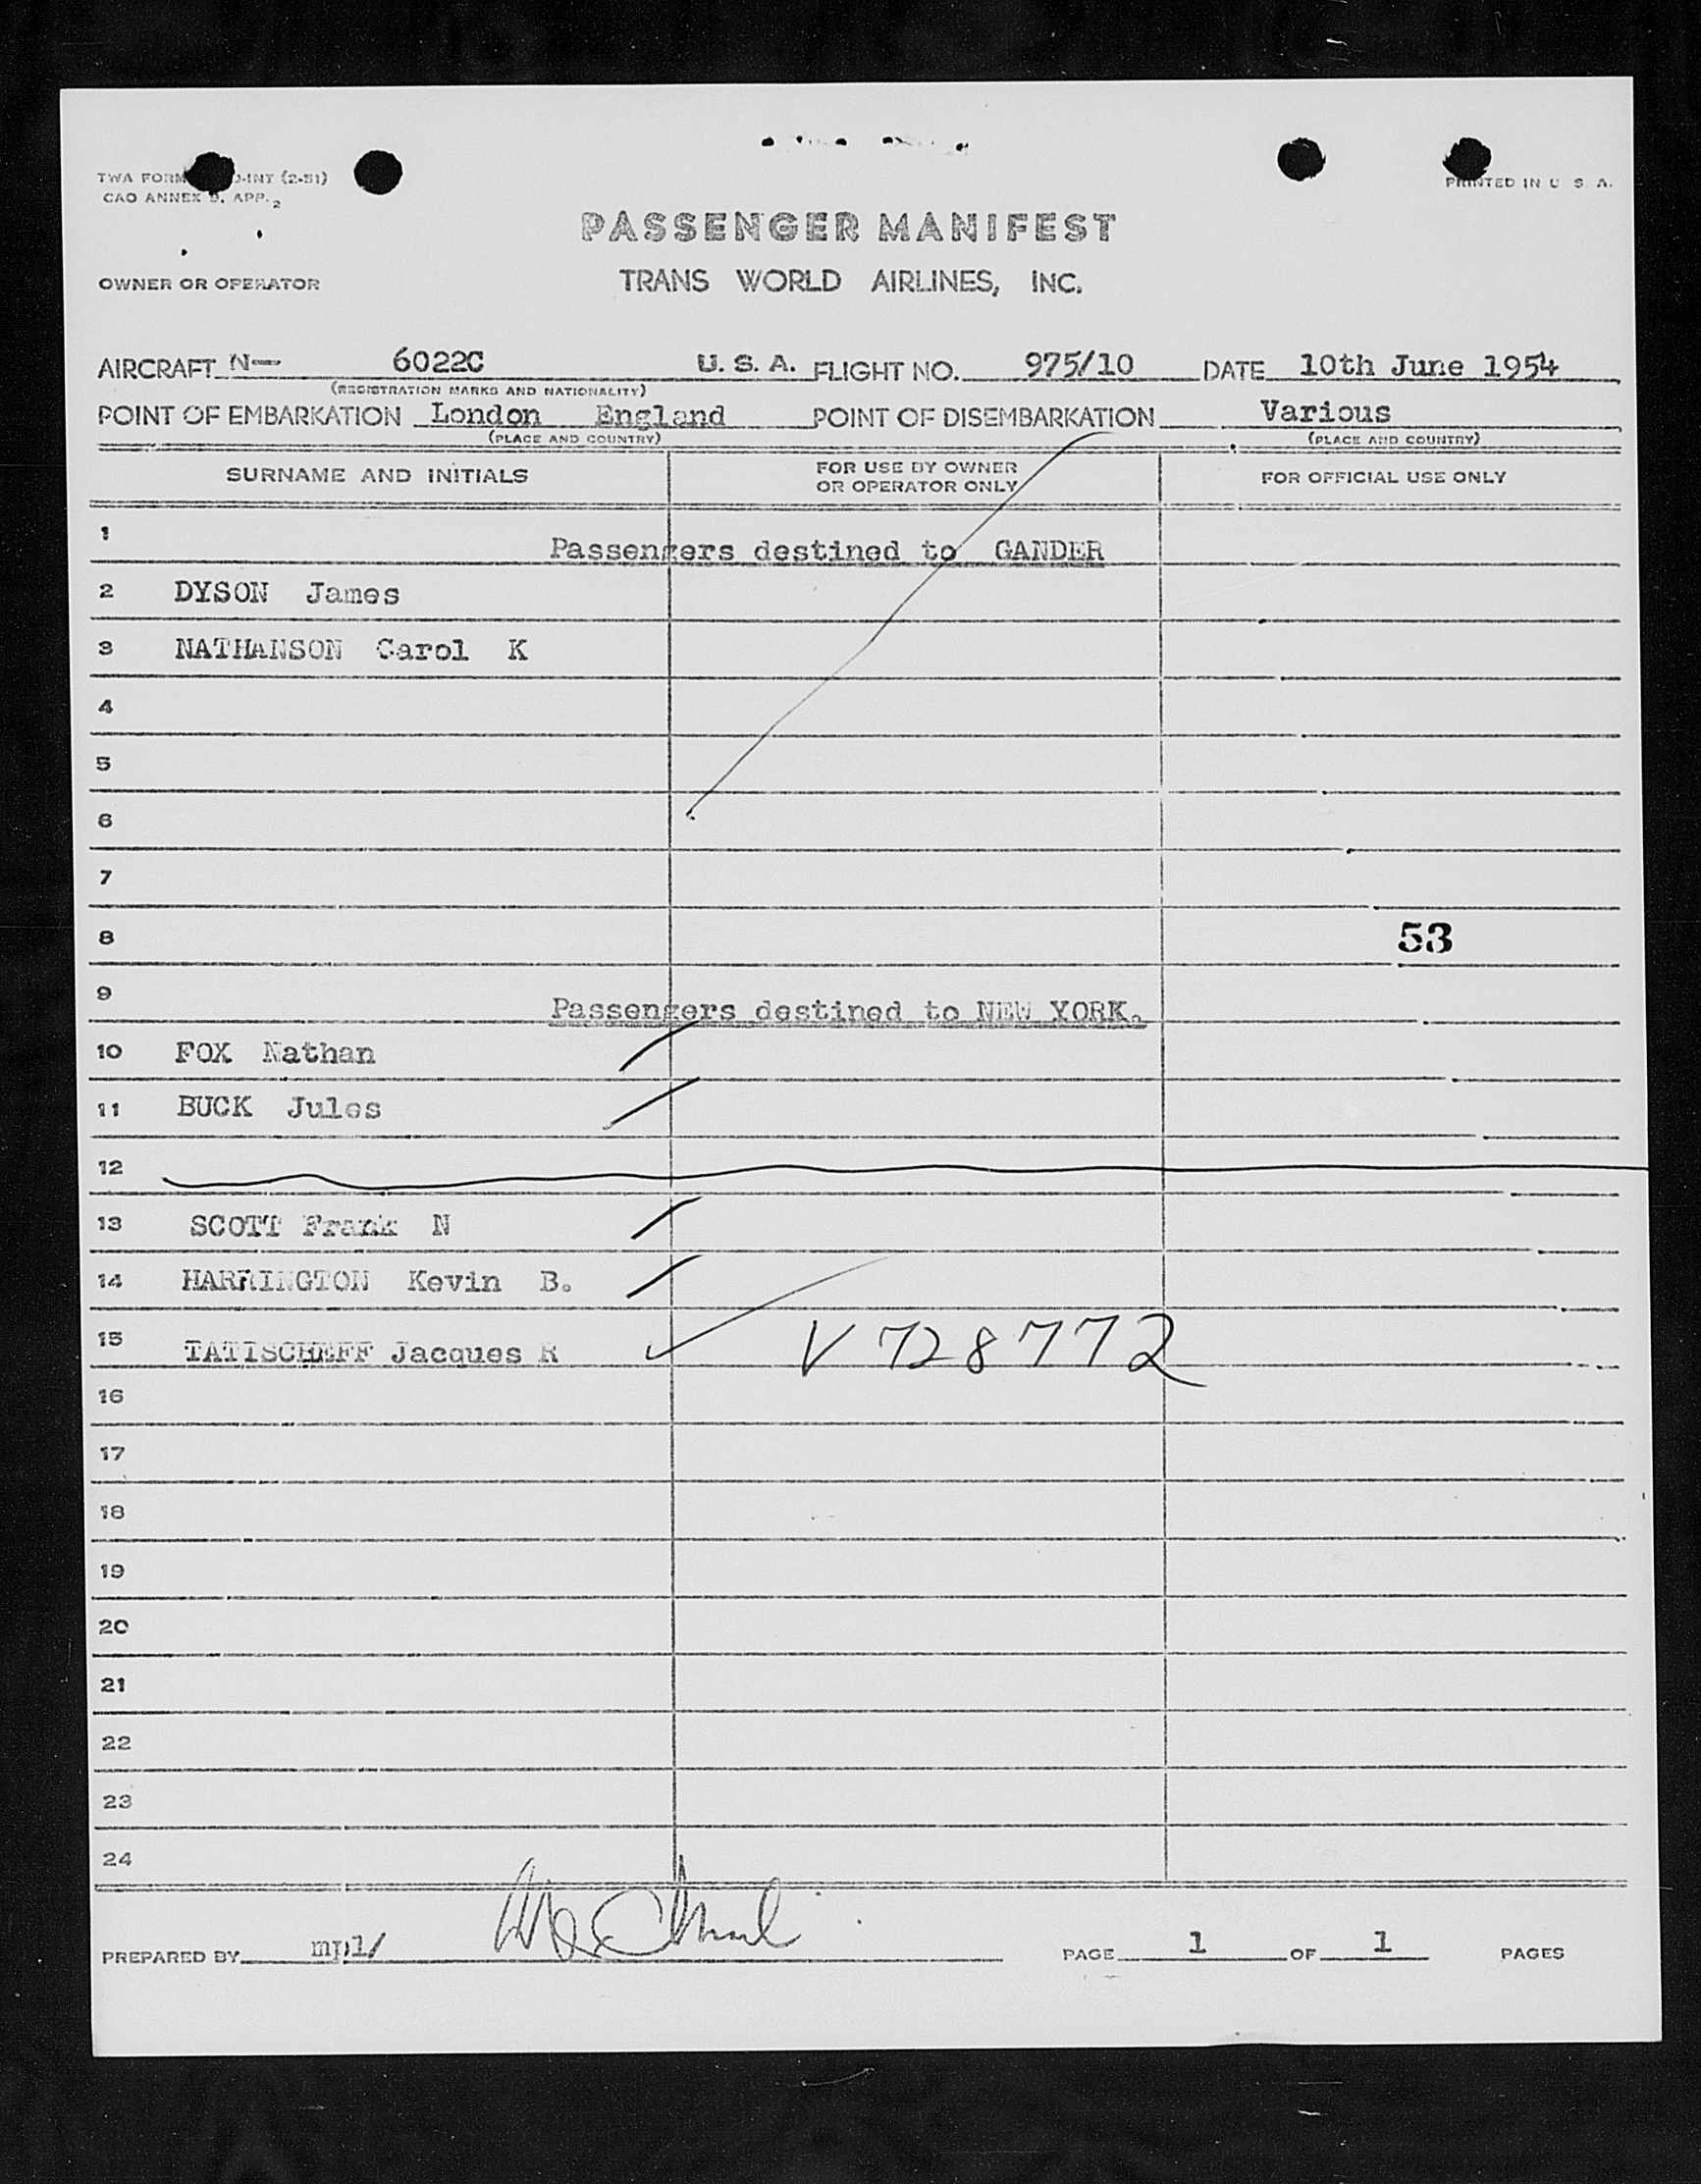 TWA FORM -INT (2-51)
CAO ANNEX 9, APP. 2
PRINTED IN U S. A.
PASSENGER MANIFEST
OWNER OR OPERATOR
TRANS WORLD AIRLINES, INC.
AIRCRAFT N- 6022C U. S. A. FLIGHT NO. 975/10 DATE 10th June 1954
(REGISTRATION MARKS AND NATIONALITY)
POINT OF EMBARKATION London England POINT OF DISEMBARKATION Various
(PLACE AND COUNTRY) (PLACE AND COUNTRY)
SURNAME AND INITIALS FOR USE BY OWNER OR OPERATOR ONLY FOR OFFICIAL USE ONLY
1 Passengers destined to GANDER
2 DYSON James
3 NATHANSON Carol K
4
5
6
7
8 53
9 Passengers destined to NEW YORK.
10 FOX Nathan
11 BUCK Jules
12
13 SCOTT Frank N
14 HARRINGTON Kevin B.
15 TATISCHEFF Jacques R V 728772
16
17
18
19
20
21
22
23
24
PREPARED BY mpl/ PAGE 1 OF 1 PAGES